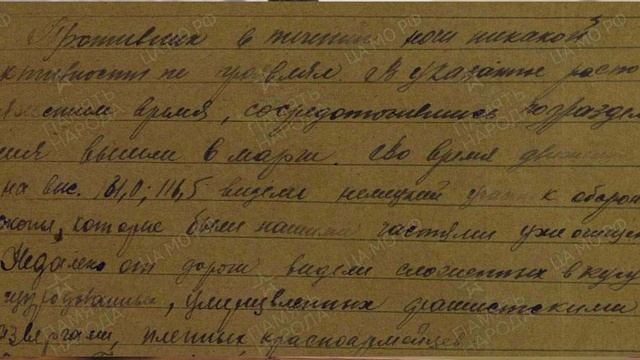 Противник в течении ночи никакой
активности не проявлял. В указанное
время, сосредоточившись подразделе
ния вышли в марш. Во время движения
на выс. 131,0; 116,5 видели немецкий к оборон
которые были нашими частями уже очищен
Недалеко от дороги видели сложенных в кучу
изуродованных, умерщвленных фашистскими
извергами, пленных красноармейцев